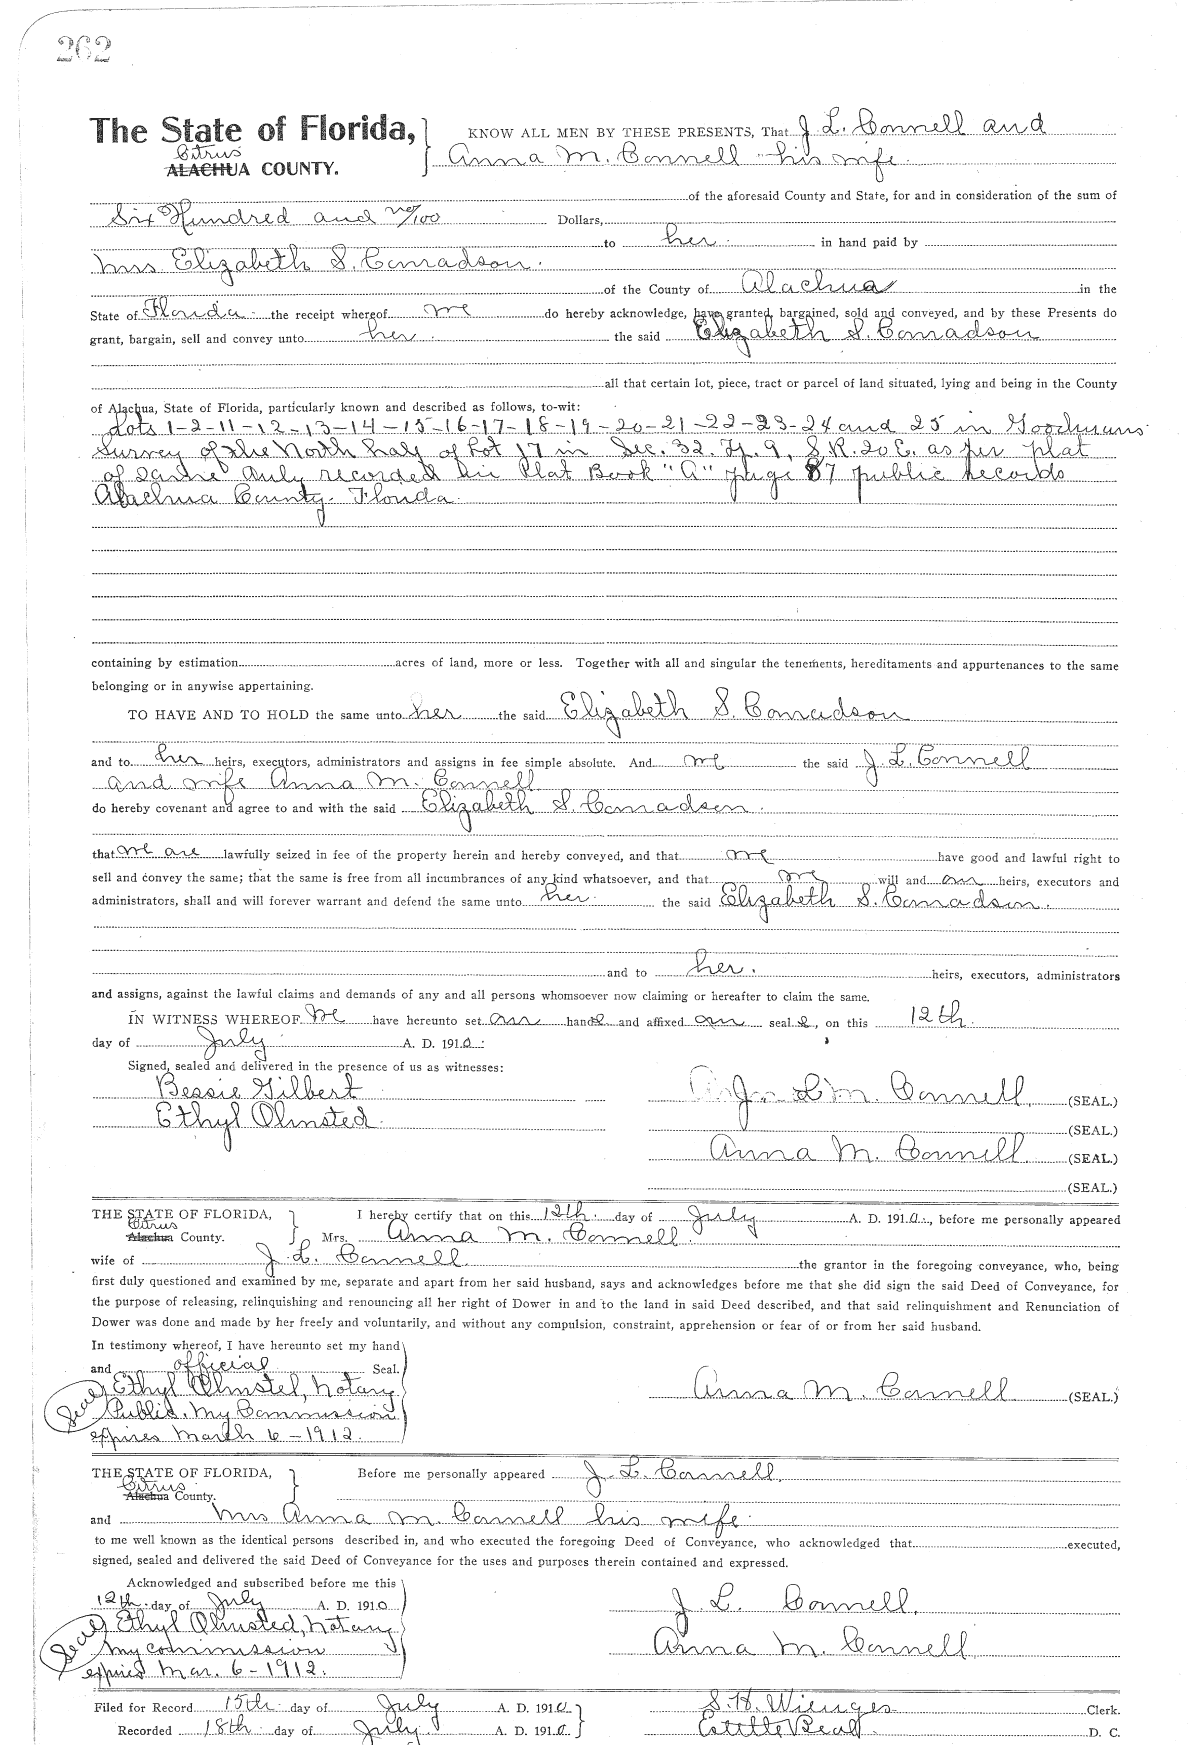 262
The State of Florida, KNOW ALL MEN BY THESE PRESENTS, That J. L. Connell and
Citrus
ALACHUA COUNTY. Anna M. Connell his wife
of the aforesaid County and State, for and in consideration of the sum of
Six Hundred and no/100 Dollars,
to her in hand paid by
Mrs Elizabeth S. Conradson.
of the County of Alachua in the
State of Florida the receipt whereof we do hereby acknowledge, have granted, bargained, sold and conveyed, and by these Presents do
grant, bargain, sell and convey unto her the said Elizabeth S. Conradson
all that certain lot, piece, tract or parcel of land situated, lying and being in the County
of Alachua, State of Florida, particularly known and described as follows, to-wit:
Lots 1-2-11-12-13-14-15-16-17-18-19-20-21-22-23-24 and 25 in Goodmans
Survey of the North half of Lot 17 in Sec. 32. Tp. 9, S. R. 20 E. as per plat
of same duly recorded in Plat Book "A" page 87 public records
Alachua County. Florida.
containing by estimation acres of land, more or less. Together with all and singular the tenements, hereditaments and appurtenances to the same
belonging or in anywise appertaining.
TO HAVE AND TO HOLD the same unto her the said Elizabeth S. Conradson
and to her heirs, executors, administrators and assigns in fee simple absolute. And we the said J. L. Connell
and wife Anna M. Connell
do hereby covenant and agree to and with the said Elizabeth S. Conradson.
that we are lawfully seized in fee of the property herein and hereby conveyed, and that we have good and lawful right to
sell and convey the same; that the same is free from all incumbrances of any kind whatsoever, and that we will and our heirs, executors and
administrators, shall and will forever warrant and defend the same unto her the said Elizabeth S. Conradson.
and to her. heirs, executors, administrators
and assigns, against the lawful claims and demands of any and all persons whomsoever now claiming or hereafter to claim the same.
IN WITNESS WHEREOF we have hereunto set our hands and affixed our seals, on this 12th
day of July A. D. 1910.
Signed, sealed and delivered in the presence of us as witnesses:
Bessie Gilbert J. L. Connell (SEAL.)
Ethyl Olmsted. (SEAL.)
Anna M. Connell (SEAL.)
(SEAL.)
THE STATE OF FLORIDA, I hereby certify that on this 12th. day of July A. D. 1910., before me personally appeared
Citrus
Alachua County. Mrs. Anna M. Connell.
wife of J. L. Connell the grantor in the foregoing conveyance, who, being
first duly questioned and examined by me, separate and apart from her said husband, says and acknowledges before me that she did sign the said Deed of Conveyance, for
the purpose of releasing, relinquishing and renouncing all her right of Dower in and to the land in said Deed described, and that said relinquishment and Renunciation of
Dower was done and made by her freely and voluntarily, and without any compulsion, constraint, apprehension or fear of or from her said husband.
In testimony whereof, I have hereunto set my hand
and official Seal.
Seal Ethyl Olmsted, Notary Anna M. Connell (SEAL.)
Public. My Commission
expires March 6-1912.
THE STATE OF FLORIDA, Before me personally appeared J. L. Connell,
Citrus
Alachua County.
and Mrs Anna M. Connell his wife
to me well known as the identical persons described in, and who executed the foregoing Deed of Conveyance, who acknowledged that executed,
signed, sealed and delivered the said Deed of Conveyance for the uses and purposes therein contained and expressed.
Acknowledged and subscribed before me this
12th. day of July A. D. 1910 J. L. Connell,
Seal Ethyl Olmsted, Notary
My commission Anna M. Connell
expires Mar. 6-1912.
Filed for Record 15th day of July A. D. 1910 S. H. Wienges Clerk.
Recorded 18th day of July A. D. 1910. Beal D. C.